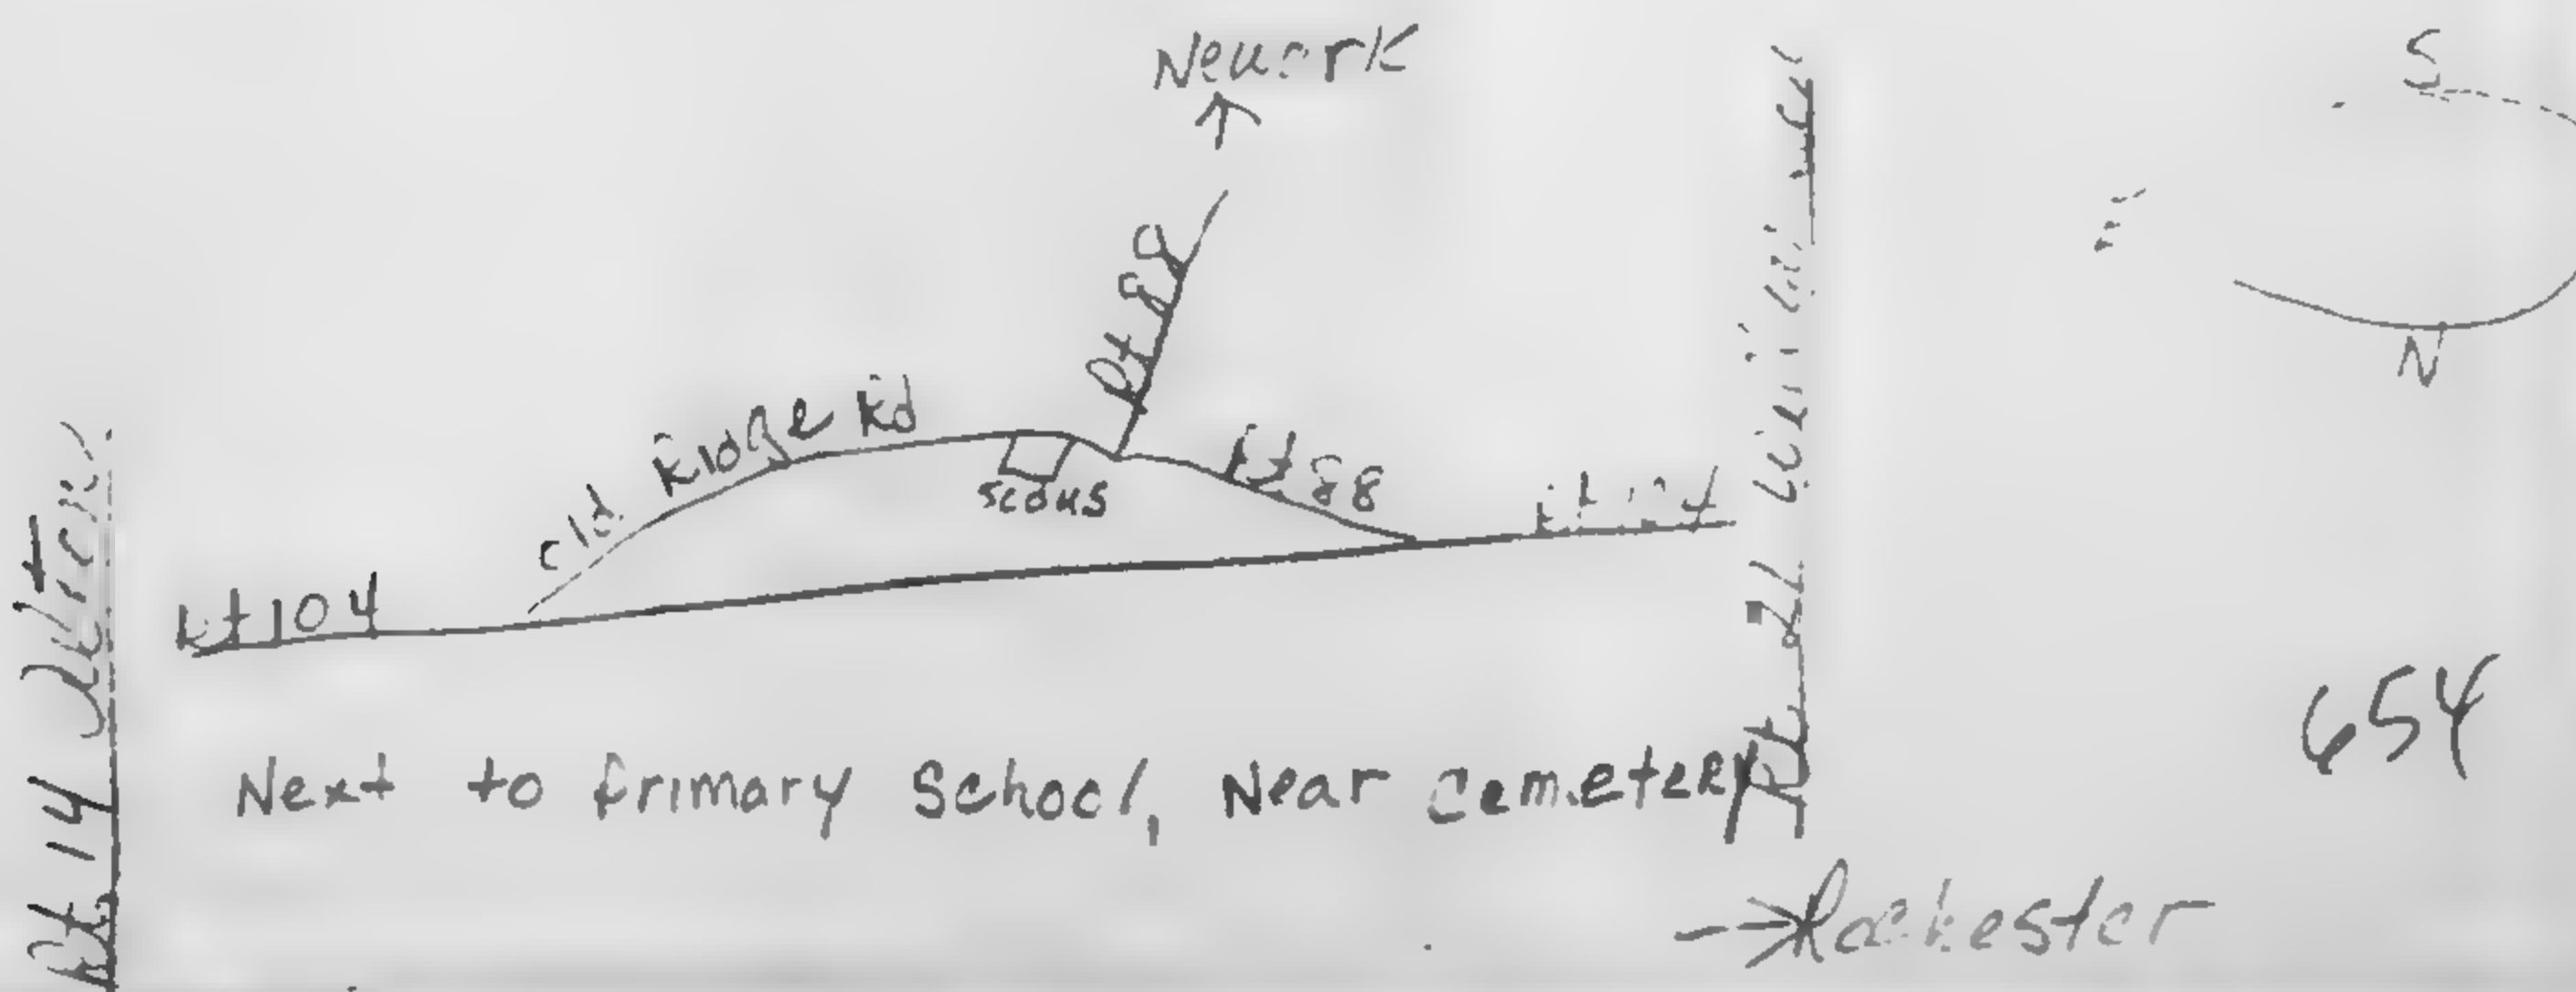 Newark
S
N
Rt 88
Old Ridge Rd
Rt 88
scous
Rt 104
Rt 104
Rt 14
Rt 21
654
Next to Primary School, Near Cemetery
Rochester